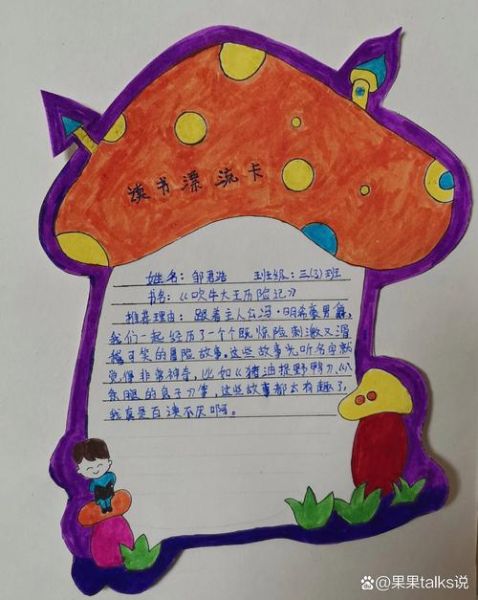 读书漂流卡
姓名：邹君浩 班级：三(3)班
书名：《吹牛大王历险记》
推荐理由：跟着主人公冯·明希豪男爵，
我们一起经历了一个个既惊险刺激又滑
稽可笑的冒险故事。这些故事光听名字就
觉得非常神奇，比如《猪油捉野鸭》《八
条腿的兔子》等，这些故事都太有趣了，
我真是百读不厌啊。
@果果talks说